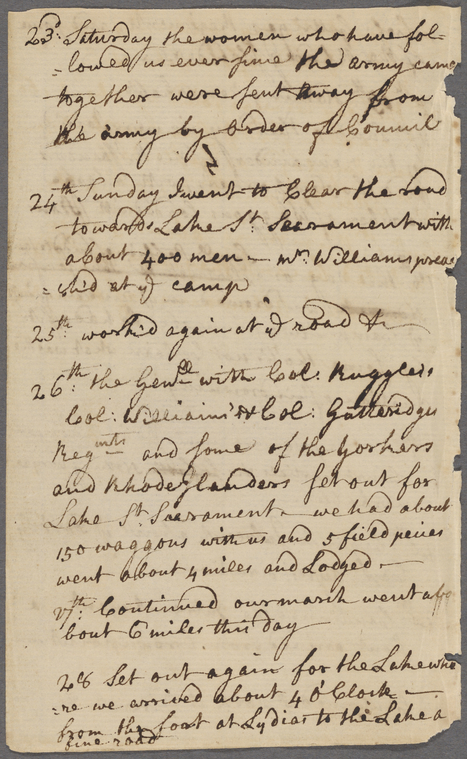 23d: Saturday the women who have fol-
=lowed us ever sinse the army came
together were sent away from
the army by order of Council
24th Sunday I went to Clear the road
towards Lake St. Sacrament with
about 400 men — mr. Williams preac
=ched at ye camp
25th: work'd again at ye road &c
26th: the Genll with Col: Ruggles
Col: Williams's & Col: Gutteridges
Regmts and some of the Yorkers
and Rhode Islanders set out for
Lake St. Sacrament — we had about
150 waggons with us and 5 field peices
went about 4 miles and Lodged —
27th: Continued our march went
bout 6 miles this day
28 Set out again for the Lake whe
=re we arrived about 4 o'Clock —
from the foort at Lydias to the Lake a
fine road